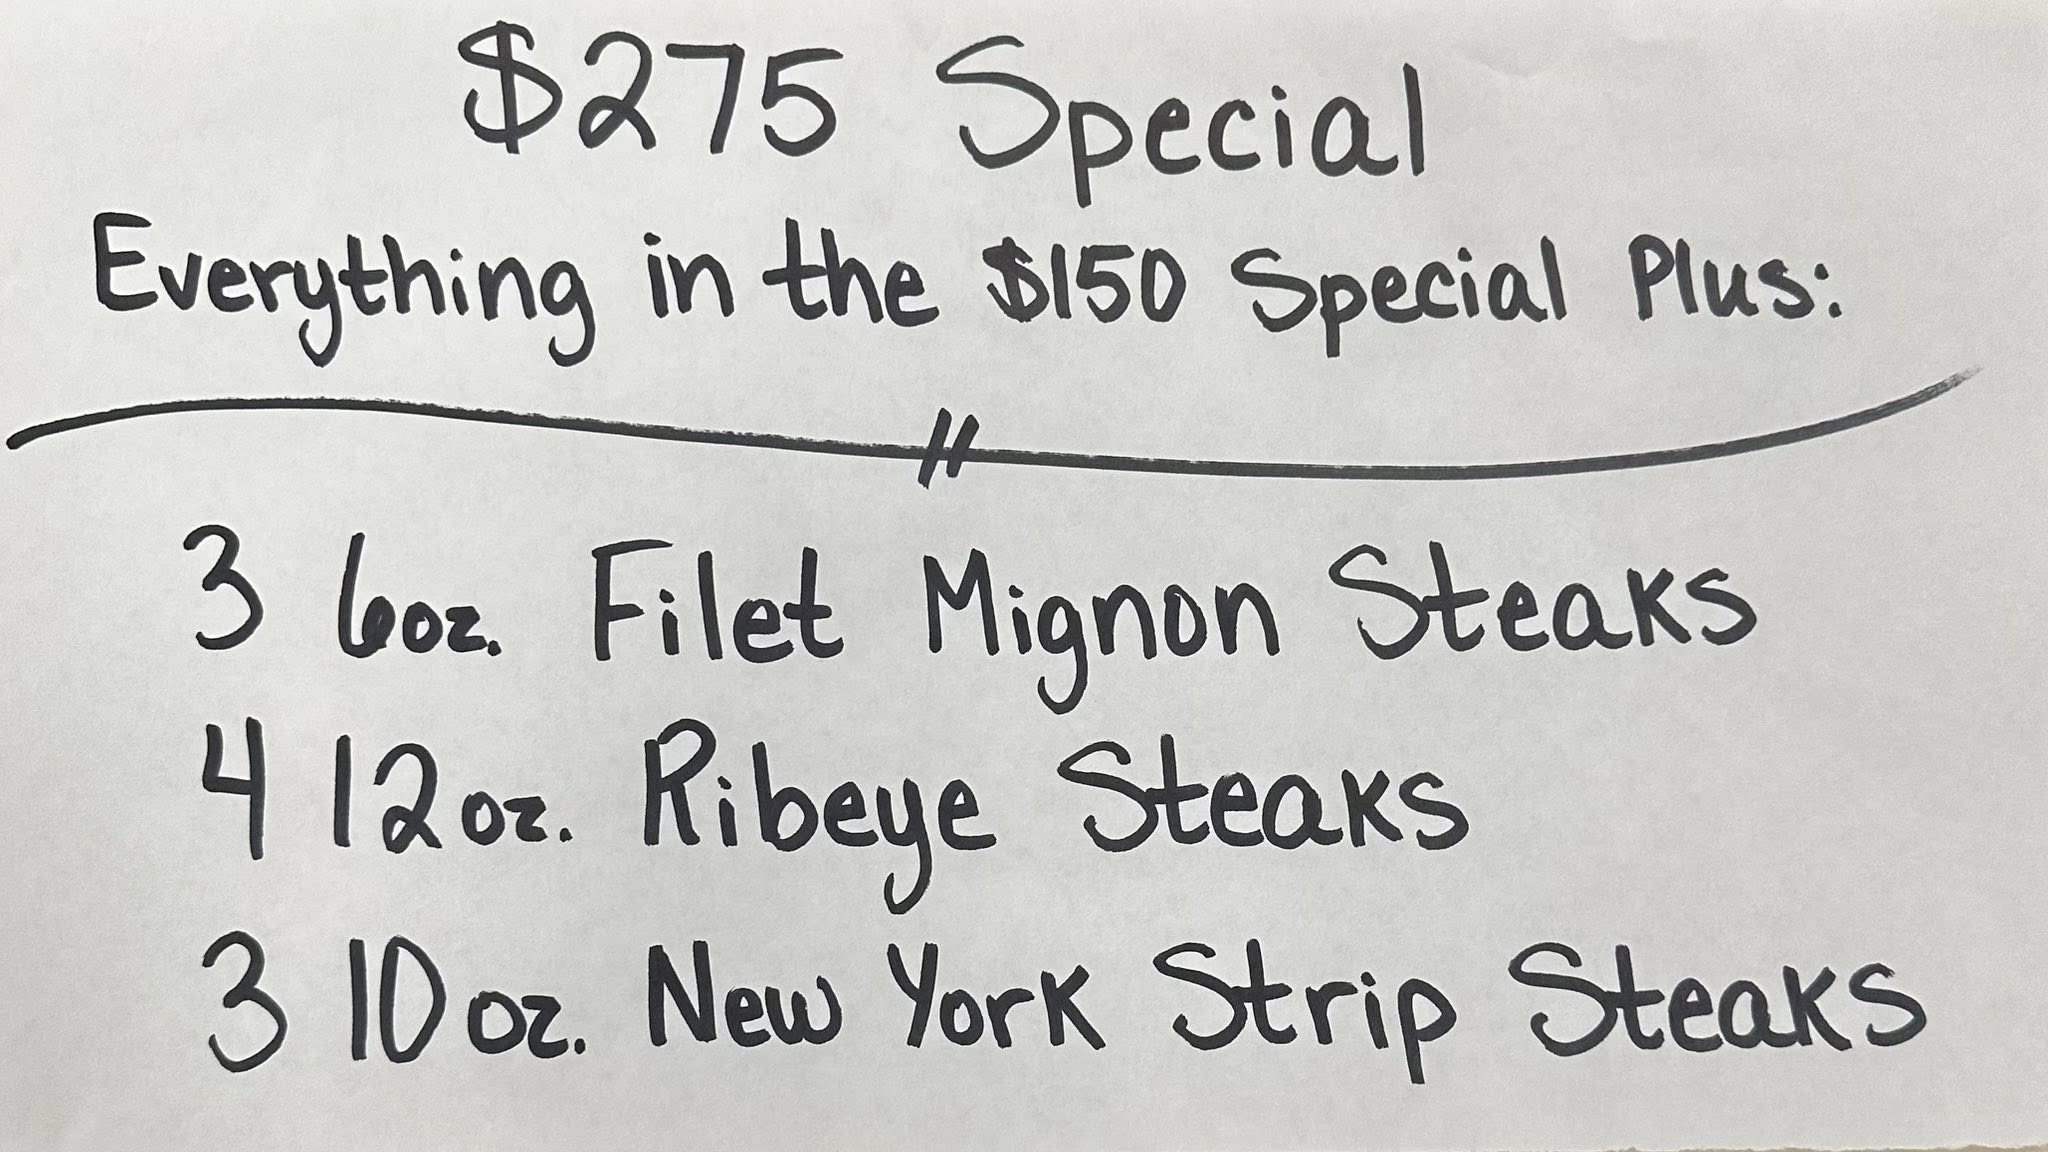 $275 Special
Everything in the $150 Special Plus:
3 6oz. Filet Mignon Steaks
4 12oz. Ribeye Steaks
3 10oz. New York Strip Steaks